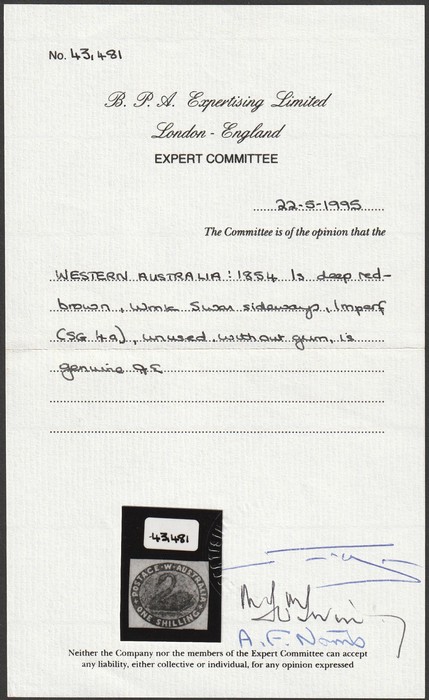 No. 43,481
B. P. A. Expertising Limited
London - England
EXPERT COMMITTEE
22-5-1995
The Committee is of the opinion that the
WESTERN AUSTRALIA: 1854 1s deep red-
brown, Wmk Swan sideways, Imperf
(SG 4a), unused without gum, is
genuine
43,481
POSTAGE·W·AUSTRALIA
ONE SHILLING
A. F. Norris
Neither the Company nor the members of the Expert Committee can accept
any liability, either collective or individual, for any opinion expressed